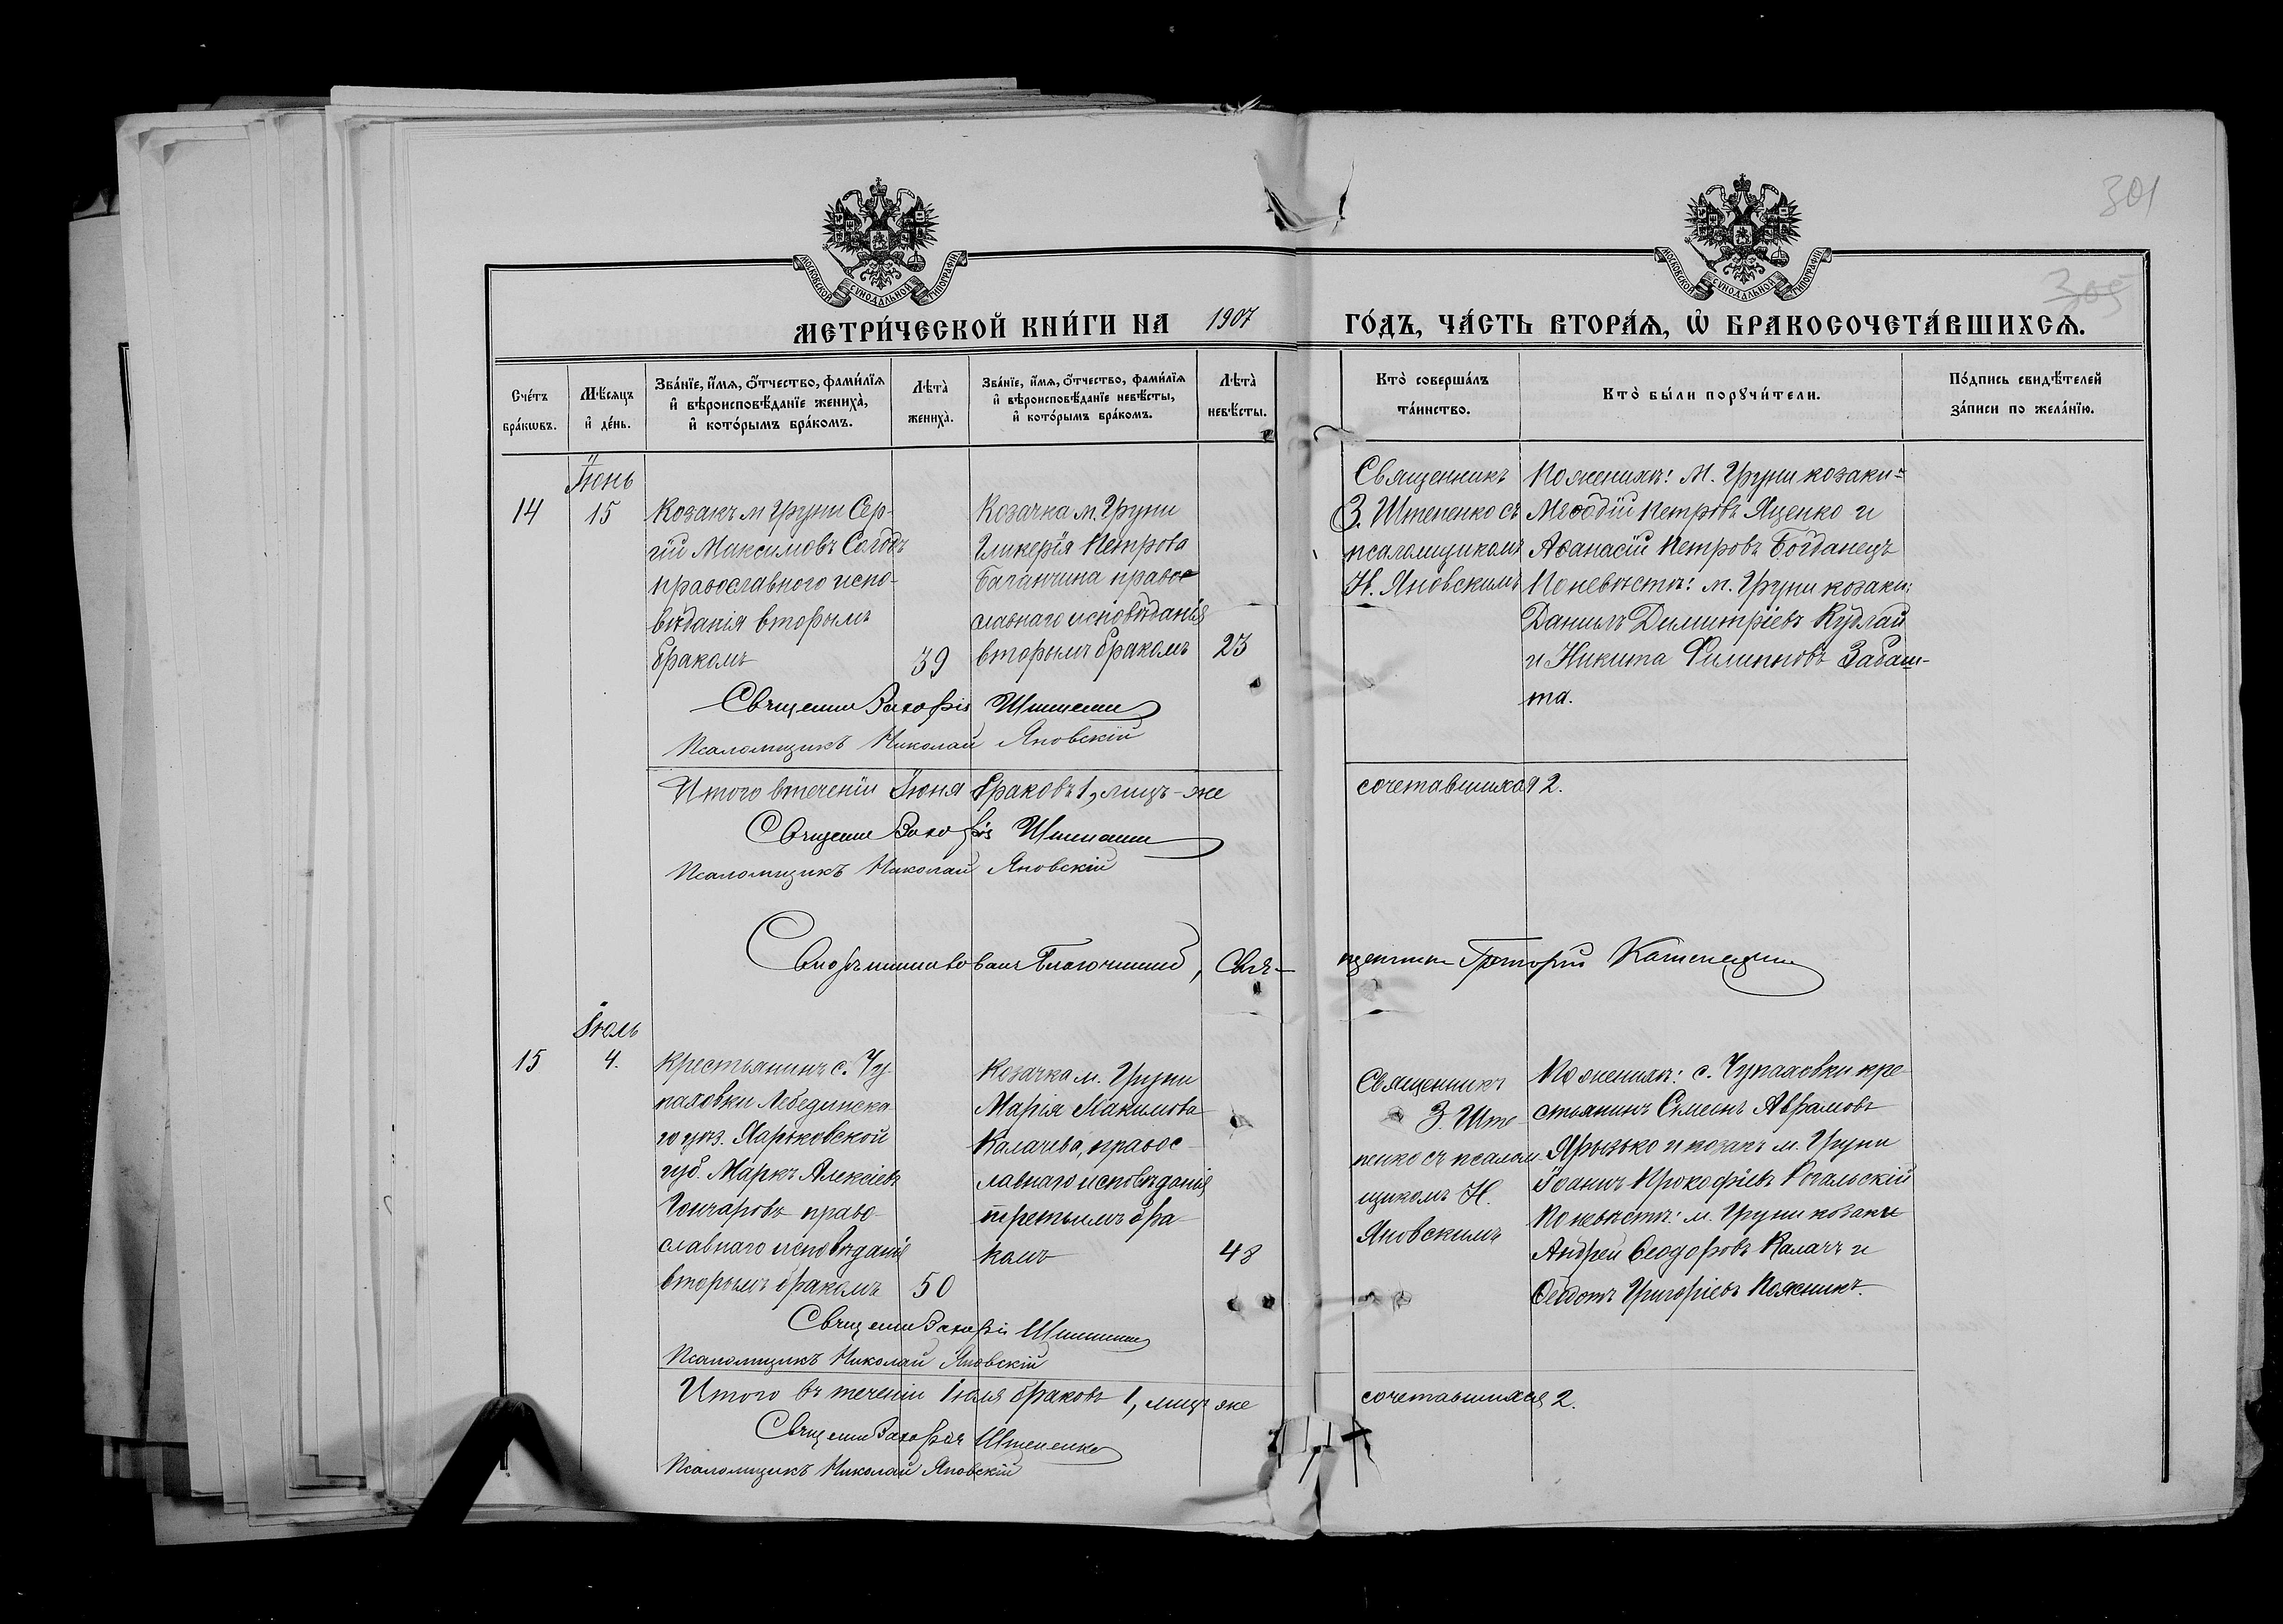 301
305
МОСКОВСКОЙ СѴНОДАЛЬНОЙ ТИПОГРАФІИ
МОСКОВСКОЙ СѴНОДАЛЬНОЙ ТИПОГРАФІИ
МЕТРИ́ЧЕСКОЙ КНИ́ГИ НА 1907 ГО́ДЪ, ЧА́СТЬ ВТОРА́Я, Ѡ БРАКОСОЧЕТА́ВШИХСЯ.
Сче́тъ
бра́кѡвъ.
Мѣ́сяцъ
и де́нь.
Зва́нїе, и́мя, ѻ́тчество, фами́лїя
и вѣроисповѣ́данїе жениха̀,
и кото́рымъ бра́комъ.
Лѣта̀
жениха̀.
Зва́нїе, и́мя, ѻ́тчество, фами́лїя
и вѣроисповѣ́данїе невѣ́сты,
и кото́рымъ бра́комъ.
Лѣта̀
невѣ́сты.
Кто̀ соверша́лъ
та́инство.
Кто̀ бы́ли порꙋчи́тели.
По́дпись свидѣ́телей
за́писи по жела́нїю.
14
Іюнь
15
Козакъ м Груни Сер-
гій Максимовъ Солодъ
православного испо-
вѣданія вторымъ
бракомъ
39
Козачка м. Груни
Гликерія Петрова
православнаго исповѣданія
вторымъ бракомъ
23
Священникъ
З. Штепенко съ
псаломщикомъ
Н. Яновскимъ
По женихѣ: м. Груни козаки-
Меѳодій Петровъ Яценко и
Аѳанасій Петровъ Богданецъ
По невѣстѣ: м. Груни козаки:
Даниилъ Димитріевъ Кудлай
и Никита Филипповъ Забаш-
та.
Псаломщикъ Николай Яновскій
Итого втеченіи Іюня браковъ 1, лицъ-же сочетавшихся 2.
Псаломщикъ Николай Яновскій
15
Іюль
4.
Крестьянинъ с. Чу-
паховки Лебединска-
го уѣз. Харьковской
губ. Маркъ Алексіевъ
Гончаровъ право-
славнаго исповѣданія
вторымъ бракомъ
50
Козачка м. Груни
Марія Іакимова
Калачева, правос-
лавнаго исповѣданія
третьимъ бра-
комъ
48
Священникъ
З. Ште-
пенко съ псалом-
щикомъ Н.
Яновскимъ
По женихѣ: с. Чупаховки кре-
стьянинъ Симеонъ Аврамовъ
Ярызько и козакъ м. Груни
Іоаннъ Прокофіевъ Рогальскій
По невѣстѣ: м. Груни козаки
Андрей Ѳеодоровъ Калачъ и
Ѳеодотъ Григоріевъ Поясникъ.
Псаломщикъ Николай Яновскій
Итого въ теченіи Іюля браковъ 1, лицъ же сочетавшихся 2.
Штепенко
Псаломщикъ Николай Яновскій